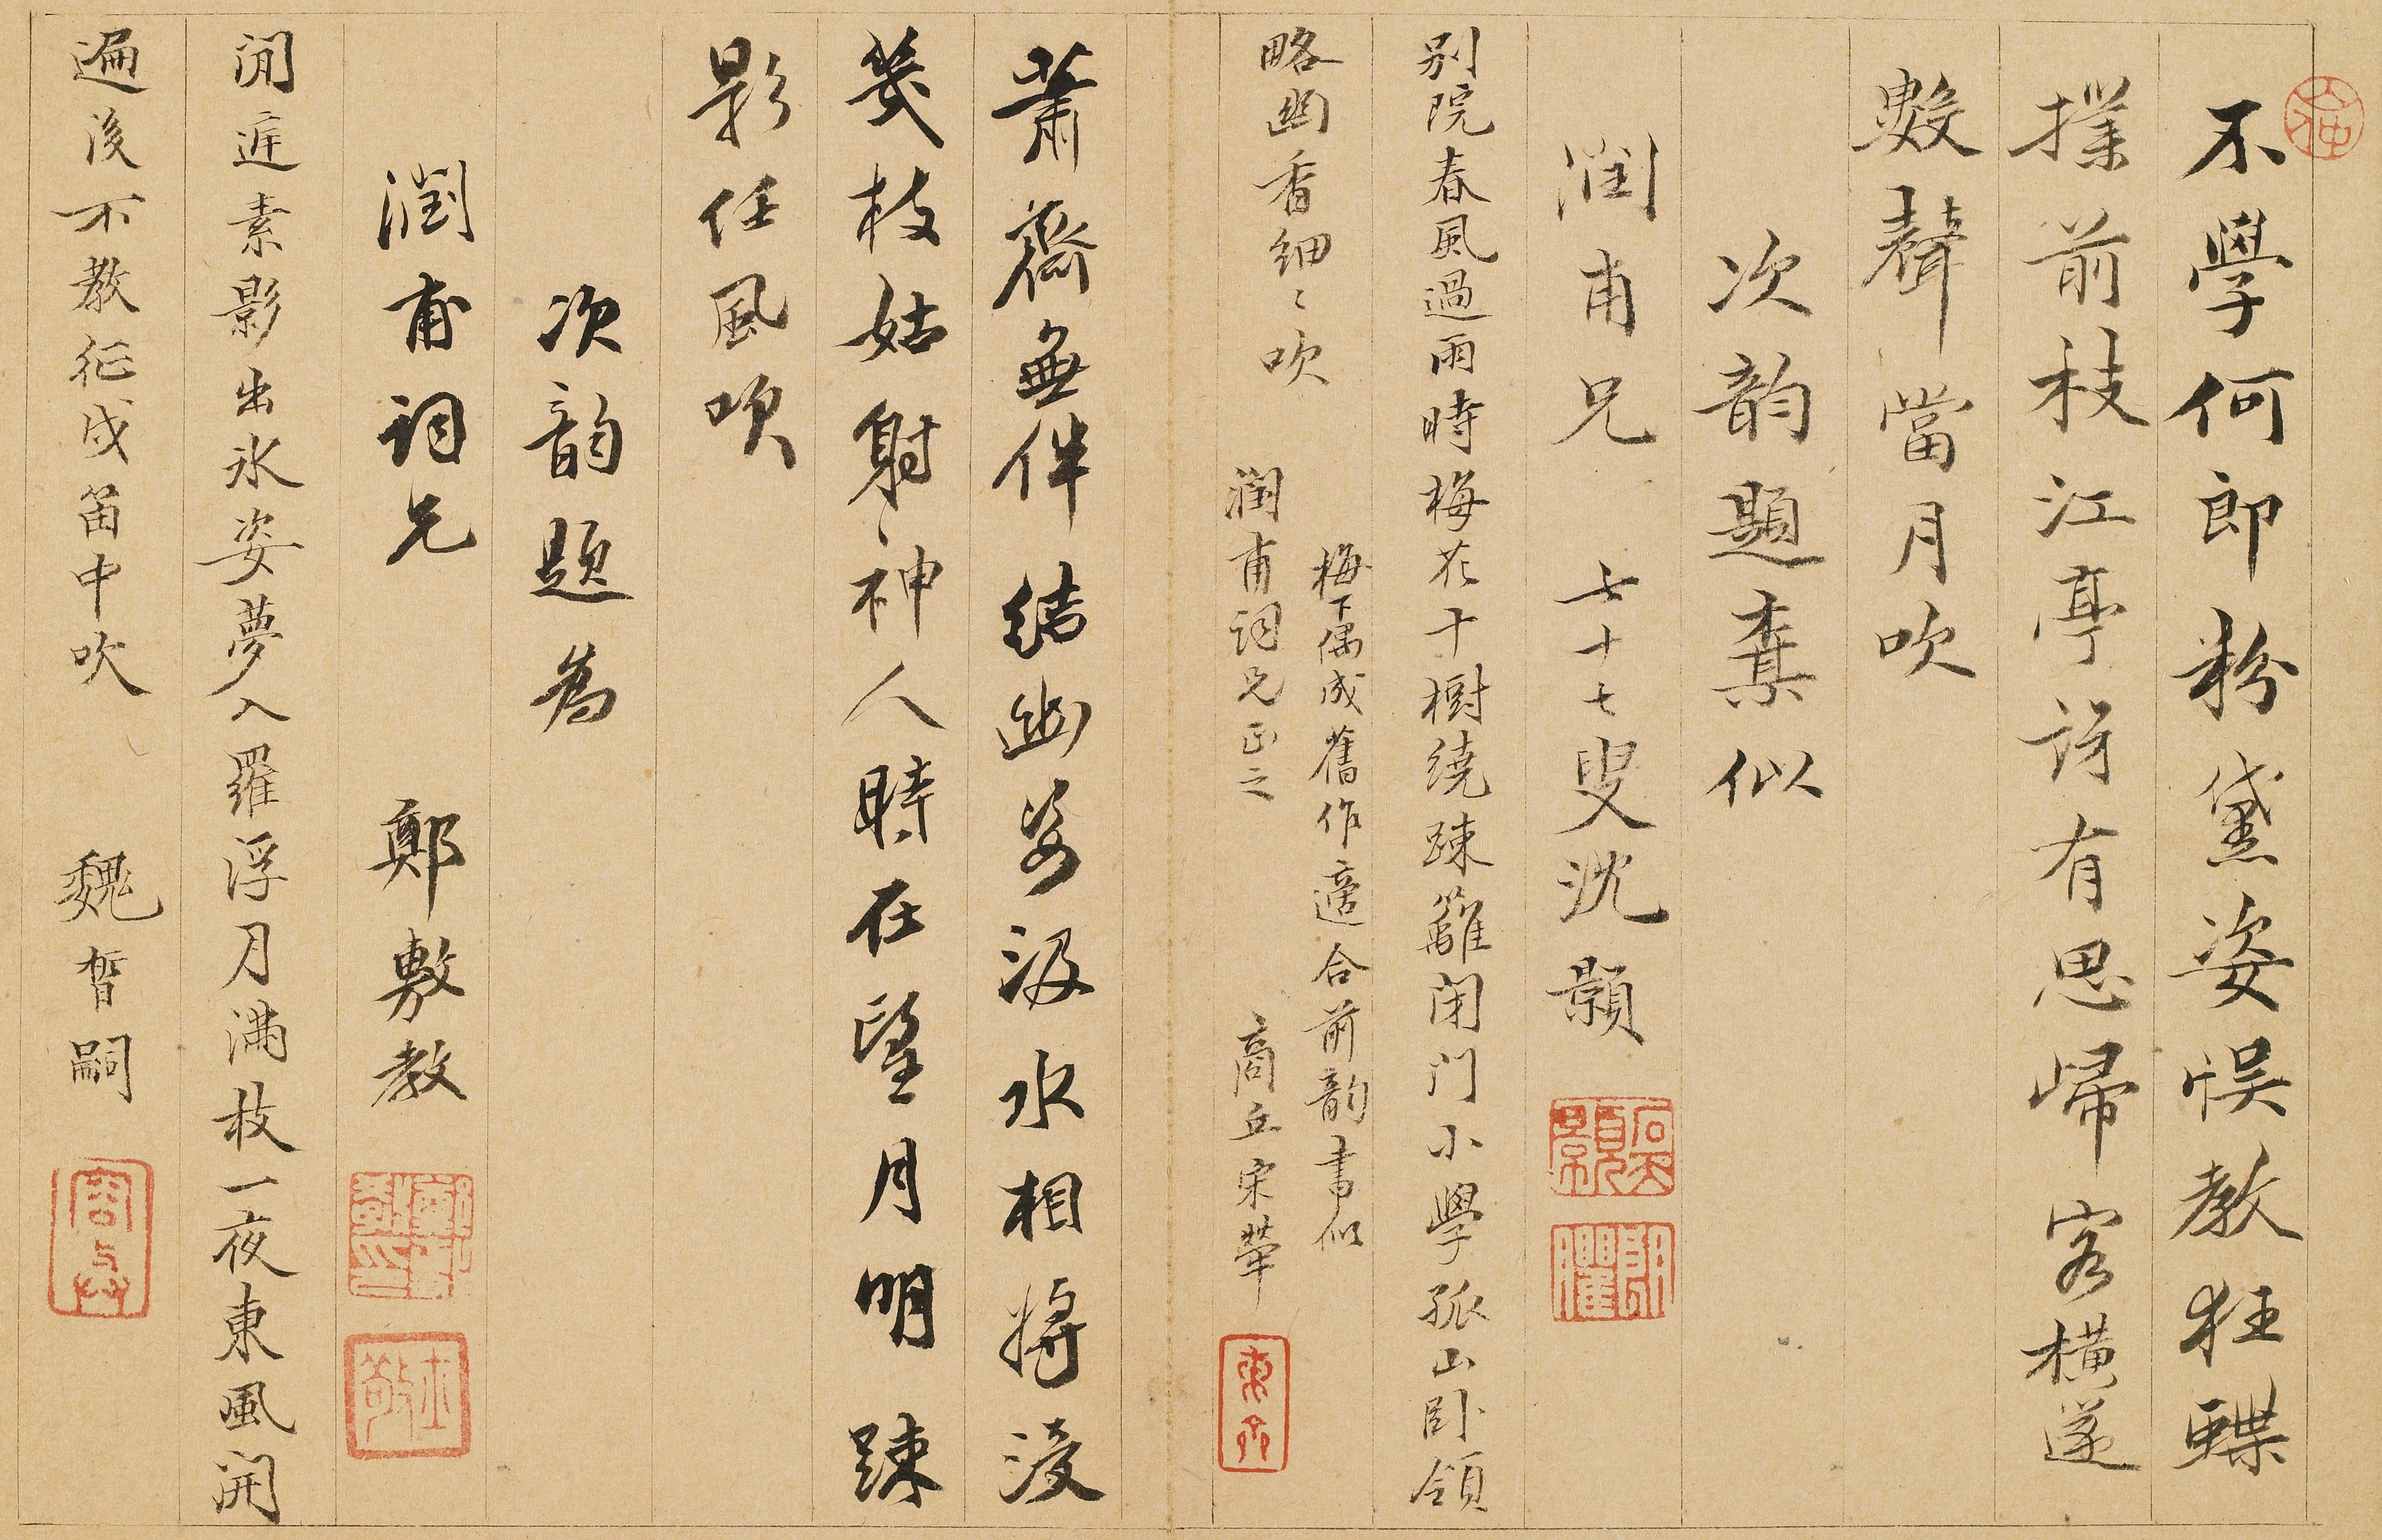 不學何郎粉黛姿悮教狂蝶
撲前枝江亭詩有思歸客橫邃
數聲當月吹
次韵題棄似
潤甫兄 七十七叟沈顥
別院春風過雨時梅花十樹繞踈籬閉门小學孤山卧領
略幽香細〻吹
梅下偶成舊作適合前韵書似
潤甫詞兄正之 商丘宋犖
蕭齋無伴結幽姿汲水相將浸
幾枝姑射〻神人時在望月明踈
影任風吹
次韵題為
潤甫詞兄 鄭敷教
閒庭素影出氷姿夢入羅浮月滿枝一夜東風開
遍後不教征戍笛中吹 魏嗣